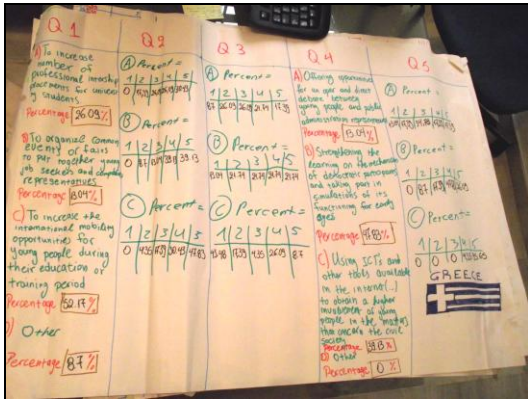 Q1
A) To increase
number of
professional
placements for
students
Percentage 26.09%
B) To organize common
events or fairs
to put together young
job seekers and
representatives
Percentage 13.04%
C) To increase the
international mobility
opportunities for
young people during
their education or
training period
Percentage 52.17%
D) Other
Percentage 8.7%
Q2
A) Percent =
1 2 3 4 5
0
B) Percent =
1 2 3 4 5
0 8.7 39.13
C) Percent =
1 2 3 4 5
0 4.35 30.43 47.83
Q3
A) Percent =
1 2 3 4 5
8.7 26.09 26.09 21.74 17.39
B) Percent =
1 2 3 4 5
13.04 21.74 21.74 21.74 21.74
C) Percent =
1 2 3 4 5
17.39 4.35 26.09 8.7
Q4
A) Offering opportunities
for an open and direct
debate between
young people and public
administration representatives
Percentage 13.04%
B) Strengthening the
learning on the mechanisms
of democratic participation
and taking part in
simulations of its
functioning for early
ages
Percentage 47.83%
C) Using ICTs and
other tools available
in the internet (...)
to obtain a higher
involvement of young
people in the matters
that concern the civic
society
Percentage 39.13%
D) Other
Percentage 0%
Q5
A) Percent =
1 2 3 4 5
B) Percent =
1 2 3 4 5
0 8.7
C) Percent =
1 2 3 4 5
0 0 0
GREECE